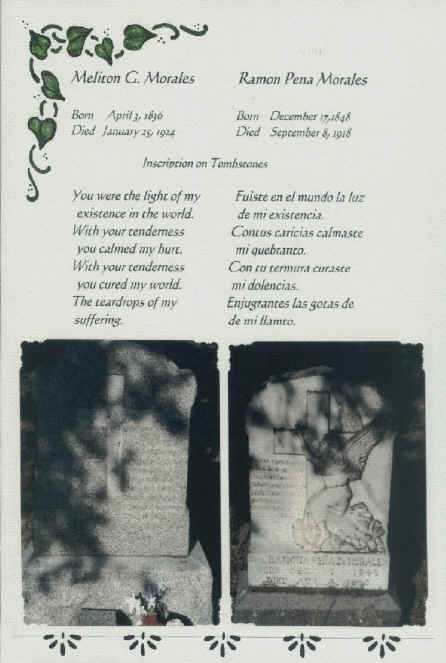 Meliton G. Morales
Born April 3, 1836
Died January 25, 1924
Ramon Pena Morales
Born December 17, 1848
Died September 8, 1918
Inscription on Tombstones
You were the light of my
existence in the world.
With your tenderness
you calmed my hurt.
With your tenderness
you cured my world.
The teardrops of my
suffering.
Fuiste en el mundo la luz
de mi existencia.
Contus caricias calmaste
mi quebranto.
Con tu termura curaste
mi dolencias.
Enjugrantes las gotas de
de mi llamto.
RAMONA PENA D MORALES
DIED